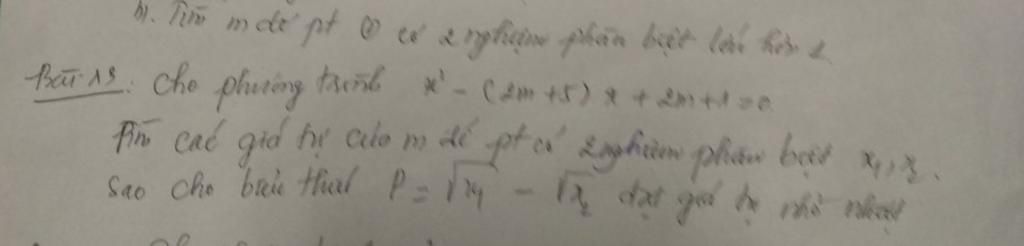 M. Tìm m để pt (1) có 2 nghiệm phân biệt lớn hơn 2
Bài 13: Cho phương trình x² - (2m+5)x + 2m+1=0
Tìm các giá trị của m để pt có 2 nghiệm phân biệt x₁, x₂.
sao cho biểu thức P = √x₁ - √x₂ đạt giá trị nhỏ nhất